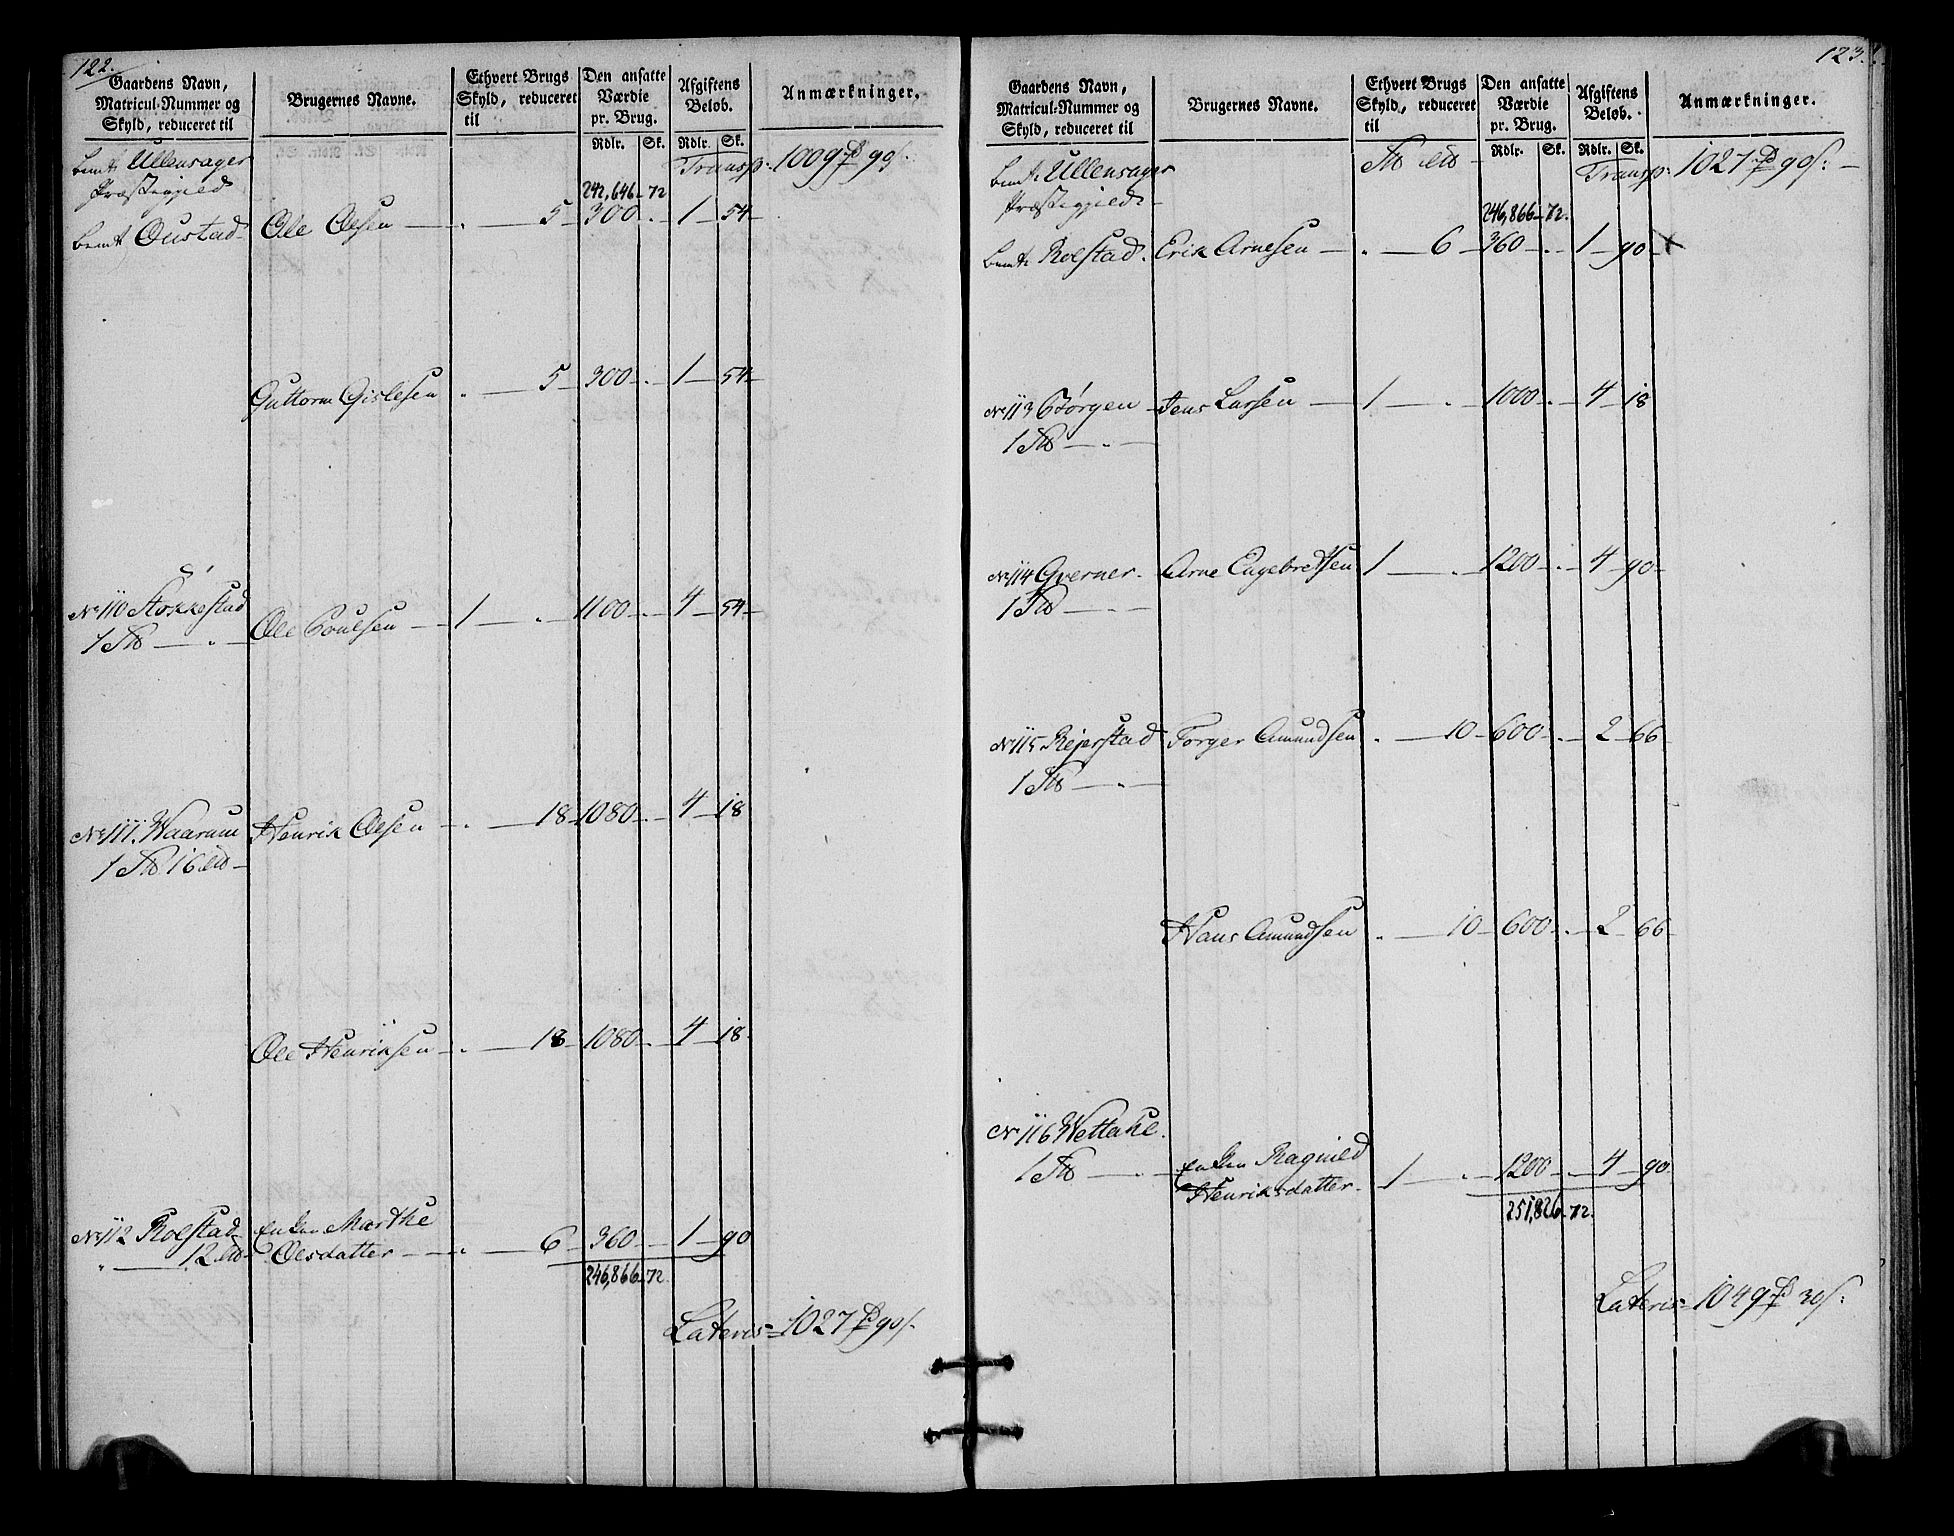 122.
Gaardens Navn, Matricul-Nummer og Skyld, reduceret til
Brugernes Navne.
Ethvert Brugs Skyld, reduceret til
Den ansatte Værdie pr. Brug.
Afgiftens Beløb.
Anmærkninger.
Rdlr. Sk. Rdlr. Sk.
bemt. Ullensager Transp. 1009 90 s.
Præstegield 242,646 - 72
bemt. Oustad Ole Olsen — „ — 5 - 300 - „ - 1 - 54
Guttorm Gislesen „ — 5 - 300 - „ - 1 - 54
No 110 Stokkestad Ole Poulsen — 1 — „ - 1100 - „ - 4 - 54
1 Sk — „
No 111. Waarum Henrik Olsen — „ — 18 - 1080 - „ - 4 - 18
1 Sk 16
Ole Henriksen — „ — 18 - 1080 - „ - 4 - 18
No 112 Rolstad Enken Marthe
„ — 12 Olsdatter — „ — 6 - 360 - 1 - 90
246,866 - 72
Lateris = 1027 90 s.
123.
Gaardens Navn, Matricul-Nummer og Skyld, reduceret til
Brugernes Navne.
Ethvert Brugs Skyld, reduceret til
Den ansatte Værdie pr. Brug.
Afgiftens Beløb.
Anmærkninger.
Rdlr. Sk. Rdlr. Sk.
bemt. Ullensager Transp. 1027 90 s. —
Præstegield 246,866 - 72.
bemt. Rolstad. Erik Arnesen — „ — 6 - 360 - „ - 1 - 90 x
No 113 Børgen Jens Larsen — 1 — „ - 1000 - „ - 4 - 18
1 Sk — „ —
No 114 Gverner. Arne Engebretsen 1 — „ - 1200 - „ - 4 - 90
1 Sk — „ —
No 115 Rejerstad Torger Amundsen „ — 10 - 600 - „ - 2 - 66
1 Sk — „
Hans Amundsen „ — 10 - 600 - „ - 2 - 66
No 116 Wettahl.
1 Sk — „ — Enken Ragnild
Henriksdatter. 1 — „ - 1200 - „ - 4 - 90
251,826 - 72.
Lateris = 1049 30 s.